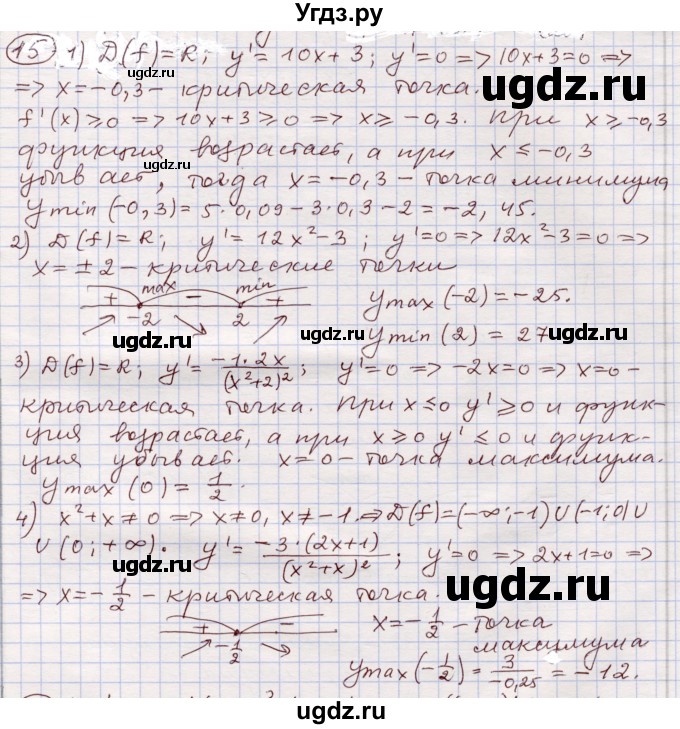 Угдз.ру
15 1) D(f)=R; y'=10x+3; y'=0=>10x+3=0=>
=> x=-0,3- критическая точка.
f'(x)≥0=>10x+3≥0=> x≥-0,3. при x≥-0,3
функция возрастает, а при x≤-0,3
убывает, тогда x=-0,3-точка минимума
ymin(-0,3)=5·0,09-3·0,3-2=-2,45.
2) D(f)=R; y'=12x²-3; y'=0=>12x²-3=0=>
x=±2-критические точки
max min
+ - +
-2 2
ymax(-2)=-25.
ymin(2)=27
3) D(f)=R; y'=-1·2x/(x²+2)²; y'=0=>-2x=0=>x=0-
критическая точка. При x≤0 y'≥0 и функ-
ция возрастает, а при x≥0 y'≤0 и функ-
ция убывает. x=0-точка максимума.
ymax(0)=1/2.
4) x²+x≠0=>x≠0, x≠-1.=>D(f)=(-∞;-1)∪(-1;0)∪
∪(0;+∞). y'=-3·(2x+1)/(x²+x)²; y'=0=>2x+1=0=>
=> x=-1/2-критическая точка.
+ -
-1/2
x=-1/2-точка
максимума
ymax(-1/2)=3/-0,25=-12.
ugdz.ru
ugdz.ru
ugdz.ru
ugdz.ru
ugdz.ru
ugdz.ru
ugdz.ru
ugdz.ru
ugdz.ru
ugdz.ru
ugdz.ru